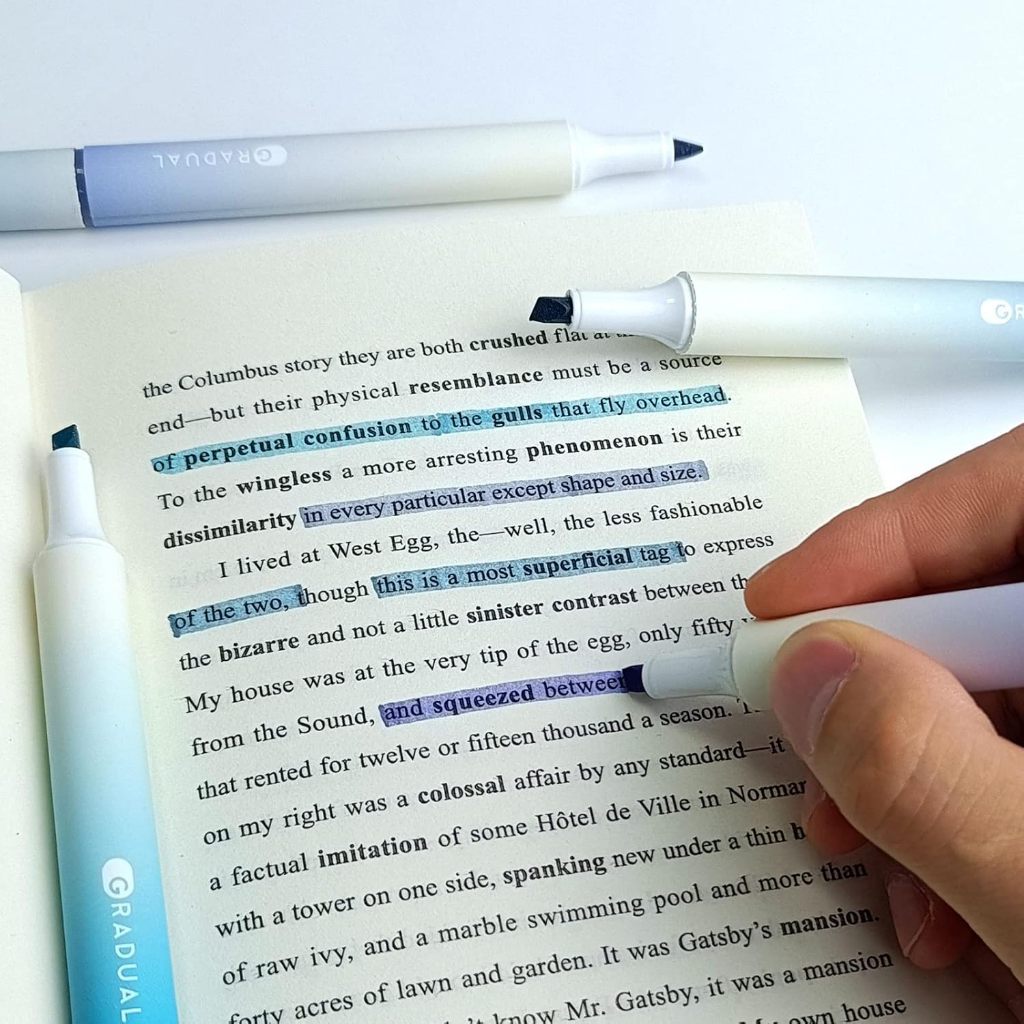 GRADUAL
the Columbus story they are both crushed flat at
end—but their physical resemblance must be a source
of perpetual confusion to the gulls that fly overhead.
To the wingless a more arresting phenomenon is their
dissimilarity in every particular except shape and size.
I lived at West Egg, the—well, the less fashionable
of the two, though this is a most superficial tag to express
the bizarre and not a little sinister contrast between
My house was at the very tip of the egg, only fifty
from the Sound, and squeezed between
that rented for twelve or fifteen thousand a season.
on my right was a colossal affair by any standard—it
a factual imitation of some Hôtel de Ville in
with a tower on one side, spanking new under a thin
of raw ivy, and a marble swimming pool and more than
forty acres of lawn and garden. It was Gatsby's mansion.
know Mr. Gatsby, it was a mansion
own house
GRADUAL